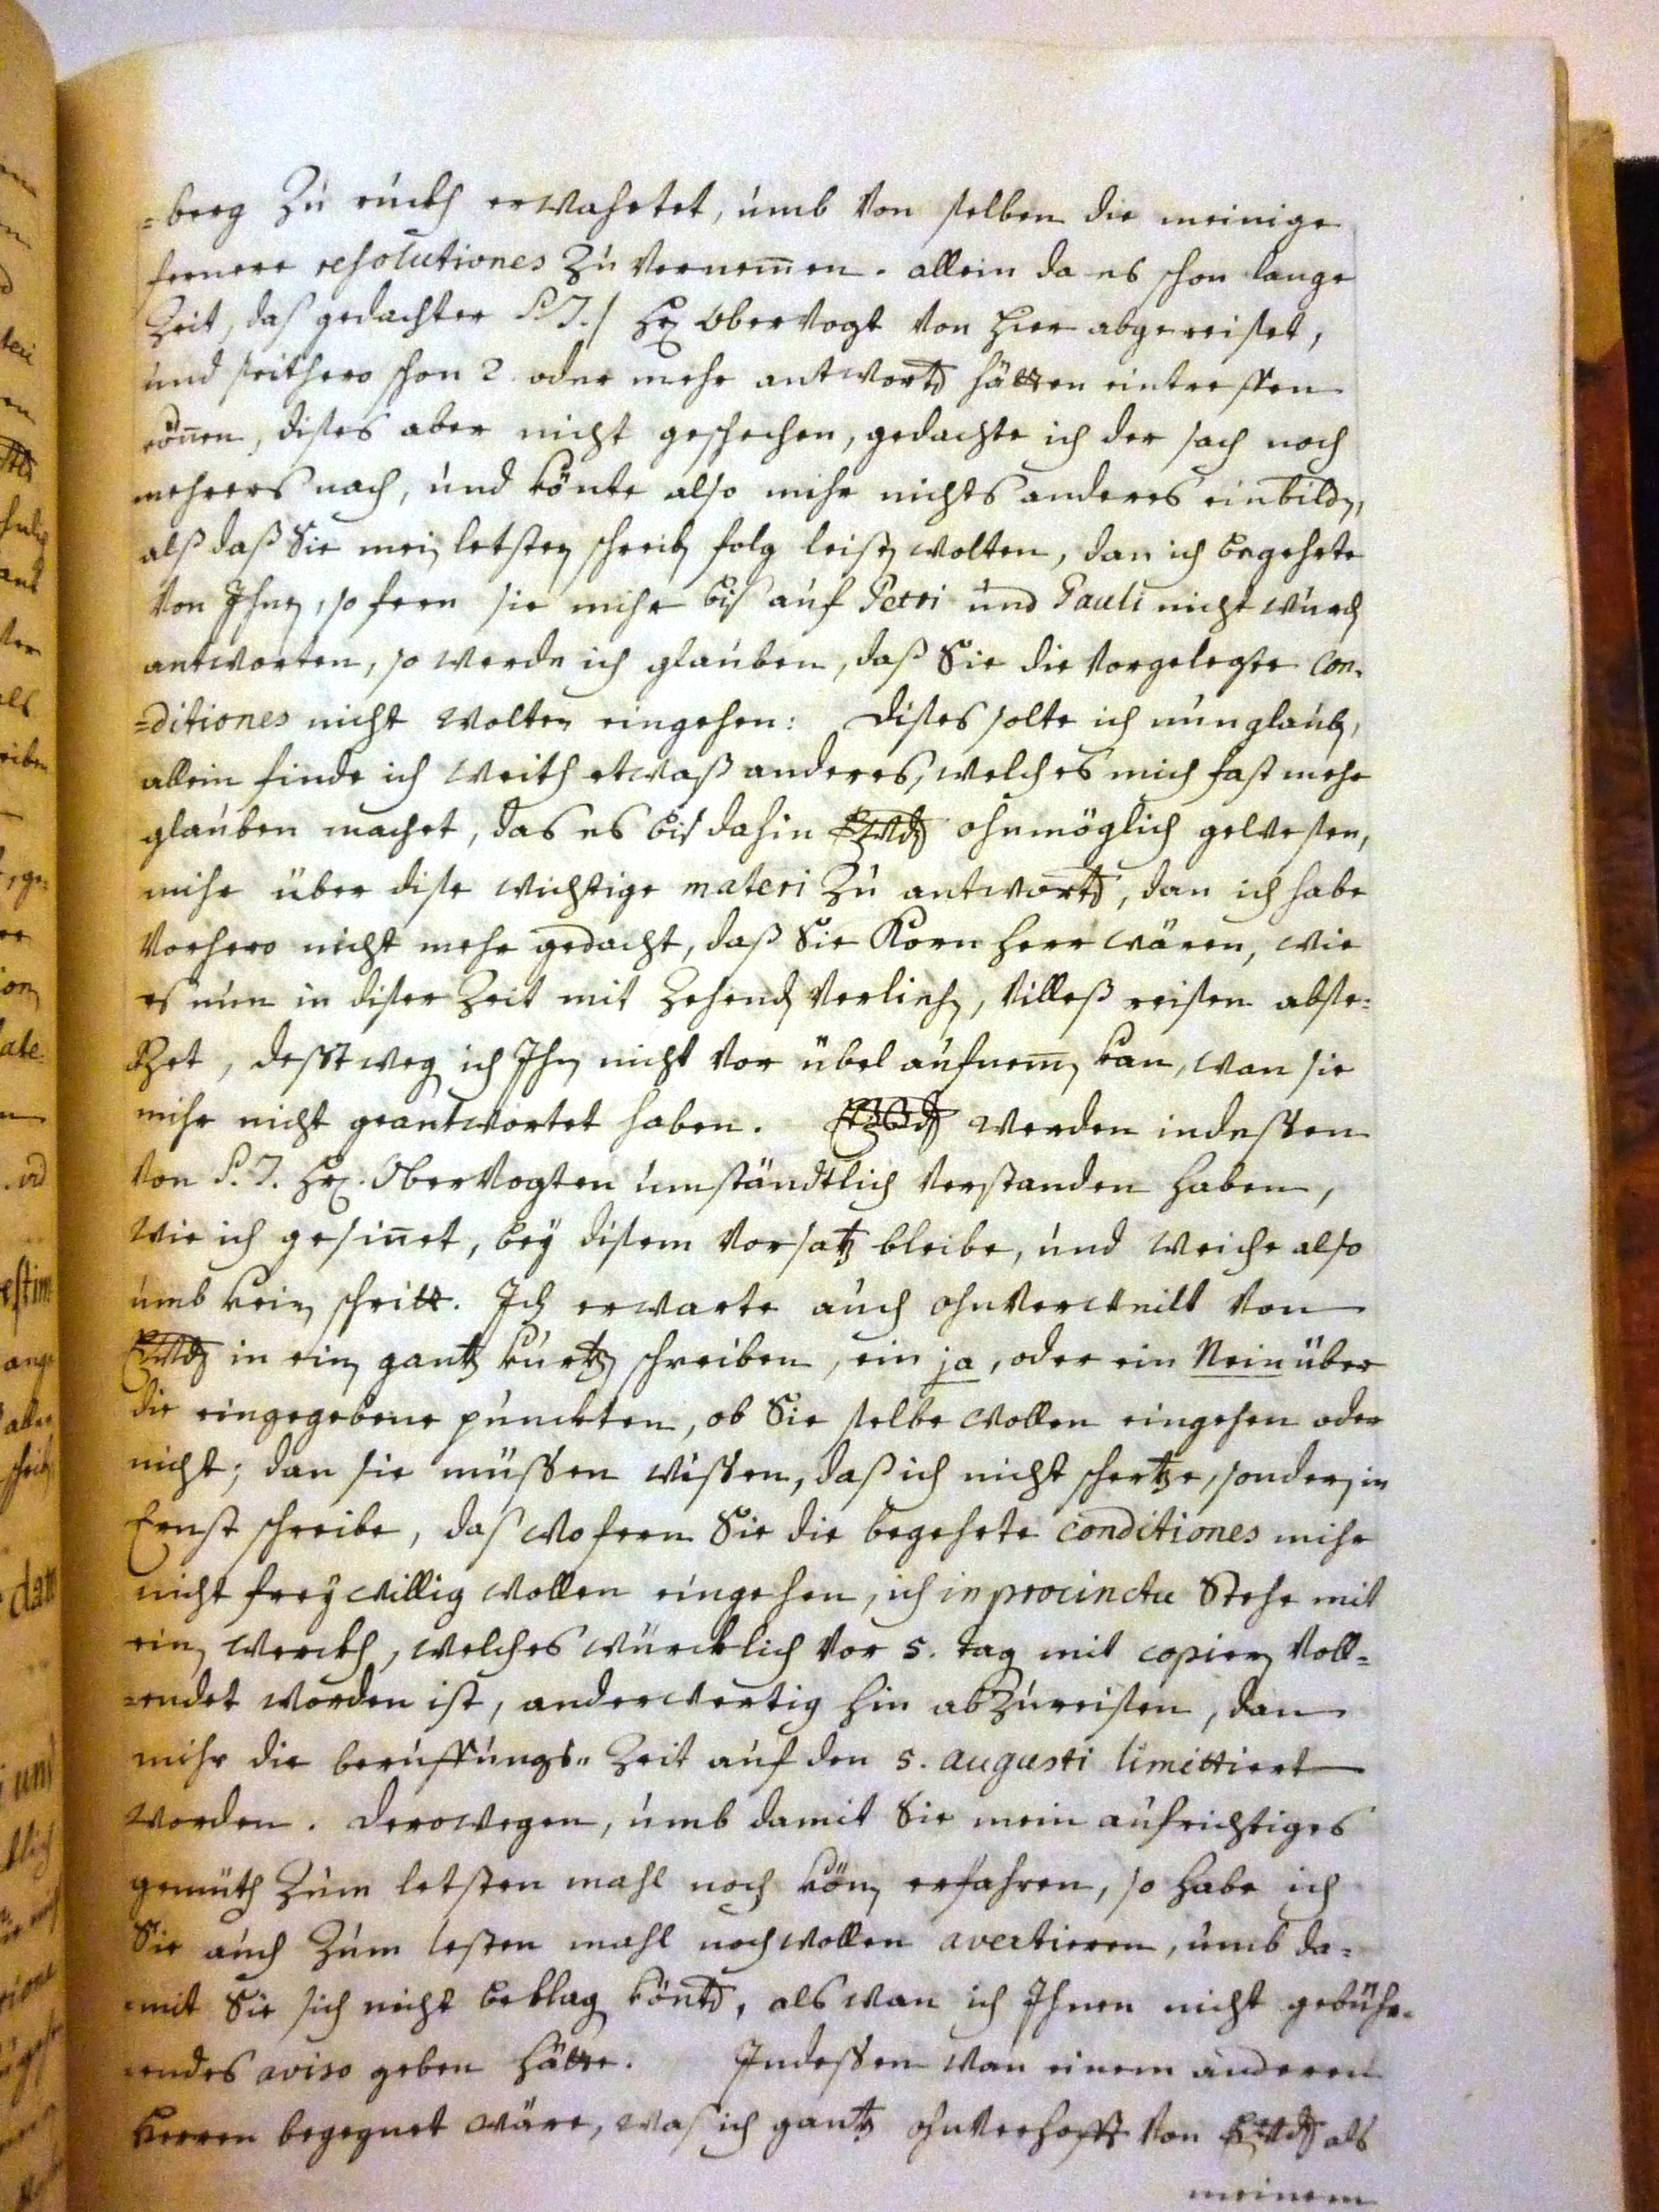 =berg Zu ruckh erwahrtet, umb von selben die meinige
fernere resolutiones Zu vernemen. allein da es schon lange
Zeit, das gedachter P. T. / Hr Obervogt von hier abgereiset,
und seithero schon 2. oder mehr antworten hätten eintreffen
können, dises aber nicht geschechen, gedachte ich der sach noch
mehrers nach, und könte also mihr nichts anderes einbilden,
alß daß Sie mein letsten schreiben folg leisten wolten, dan ich begehrte
von Ihnen, so fern sie mihr biß auf Petri und Pauli nicht wurden
antworten, so werde ich glauben, daß Sie die vorgelegte Con-
=ditiones nicht wolten eingehen: dises solte ich nun glauben,
allein finde ich weith etwaß anderes, welches mich fast mehr
glauben machet, das es biß dahin ohnmöglich gewesen,
mihr über dise wichtige materi Zu antworten, dan ich habe
vorhero nicht mehr gedacht, daß Sie Kornherr wären, wie
es nun in diser Zeit mit Zehenden verlichen, villeß reisen abse-
tzet, desstwegen ich Ihnen nicht vor übel aufnemen kan, wan sie
mihr nicht geantwortet haben. werden indessen
von P. T. Hr. Obervogten umständtlich verstanden haben,
wie ich gesinnet, bey disem vorsatz bleibe, und weiche also
umb kein schritt. Ich erwarte auch ohnverweilt von
in ein gantz kurtzen schreiben, ein ja, oder ein Nein über
die eingegebene puncten, ob Sie selbe wollen eingehen oder
nicht; dan sie müssen wissen, daß ich nicht schertze, sondern in
Ernst schreibe, das wofern Sie die begehrte conditiones mihr
nicht freywillig wollen eingehen, ich in procinctu Stehe mit
ein werckh, welches würcklich vor 5. tag mit copieren voll-
=endet worden ist, anderwertig hin abzureisen, dan
mihr die beruffungs- Zeit auf den 5. augusti limittiert
worden. derowegen, umb damit Sie mein aufrichtiges
gemüth Zum letsten mahl noch können erfahren, so habe ich
Sie auch Zum lesten mahl noch wollen avertieren, umb da-
=mit Sie sich nicht beklagen könten, als wan ich Ihnen nicht gebühr-
=endes aviso geben hätte. Indessen wan einem anderen
Herren begegnet wäre, waß ich gantz ohnverhofft von als
meinem